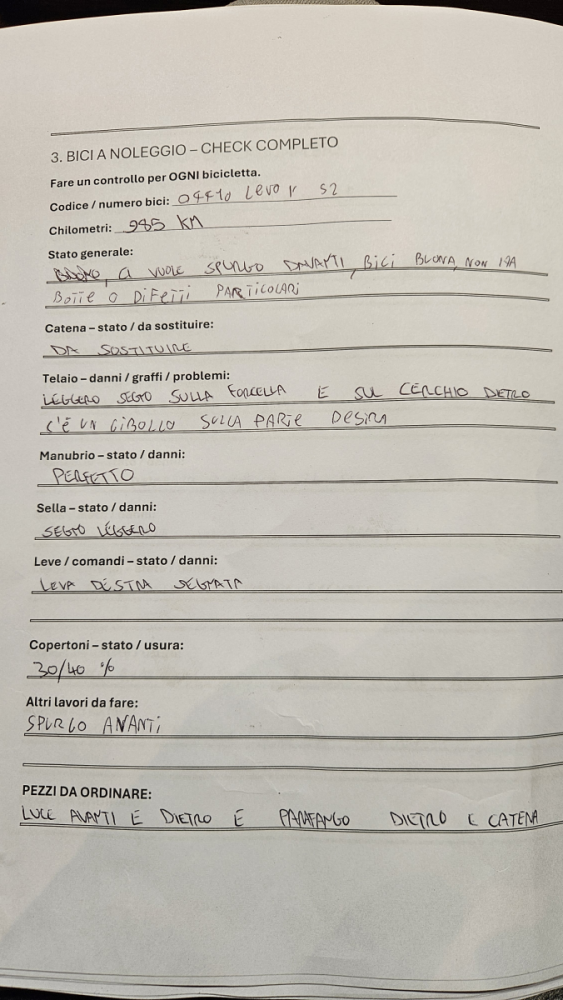 3. BICI A NOLEGGIO – CHECK COMPLETO
Fare un controllo per OGNI bicicletta.
Codice / numero bici: Levo R S2
Chilometri: 985 KM
Stato generale:
BUONO, CI VUOLE SPURGO DAVANTI, BICI BUONA, NON HA
BOTTE O DIFETTI PARTICOLARI
Catena – stato / da sostituire:
DA SOSTITUIRE
Telaio – danni / graffi / problemi:
LEGGERO SEGNO SULLA FORCELLA E SUL CERCHIO DIETRO
C'È UN SULLA PARTE DESTRA
Manubrio – stato / danni:
PERFETTO
Sella – stato / danni:
SEGNO LEGGERO
Leve / comandi – stato / danni:
LEVA DESTRA SEGNATA
Copertoni – stato / usura:
30/40 %
Altri lavori da fare:
SPURGO AVANTI
PEZZI DA ORDINARE:
LUCE AVANTI E DIETRO E PARAFANGO DIETRO E CATENA